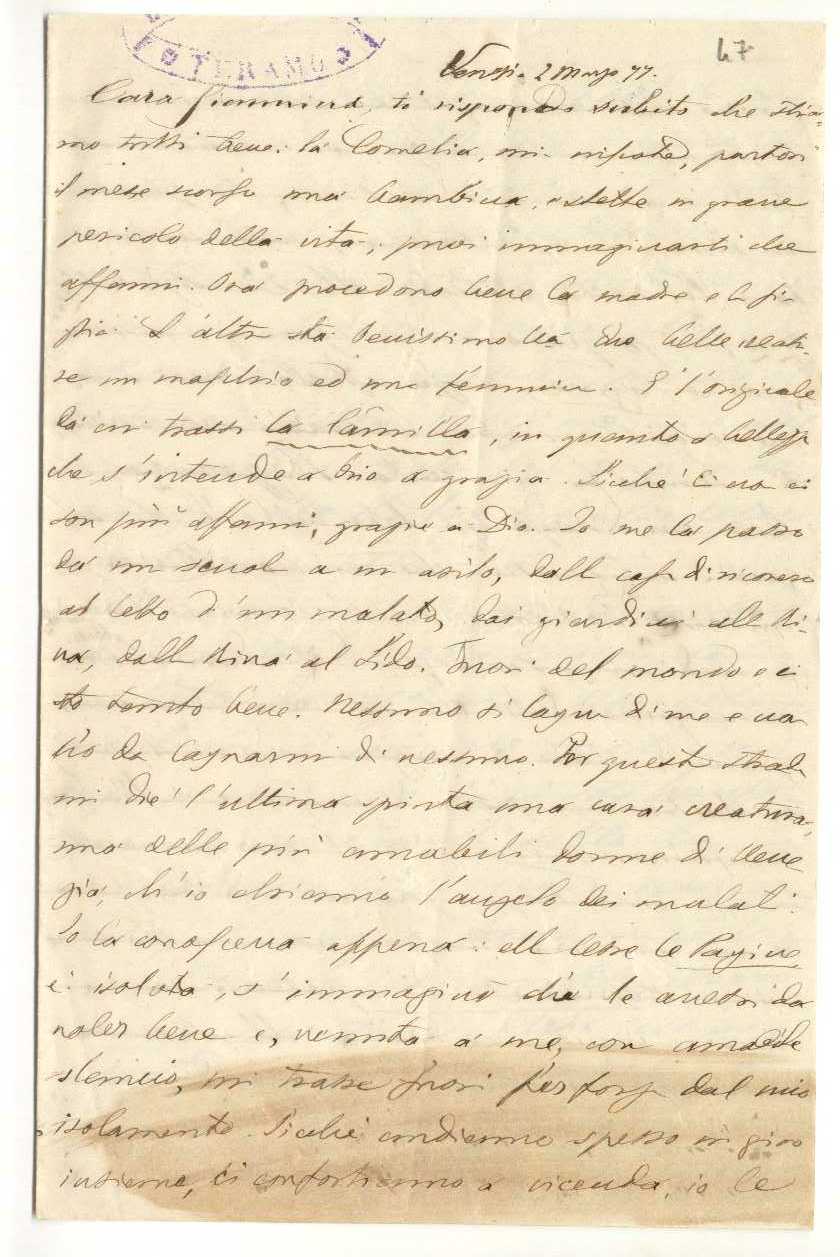 TERAMO
47
Venezia 2 Marzo 77.
Cara Giannina, ti rispondo subito che stia-
mo tutti bene: la Cornelia, mia nipote, partorì
il mese scorso una bambina, e stette in grave
pericolo della vita; puoi immaginarti che
affanni. Ora procedono bene la madre e la fi-
glia. L'altra sta benissimo ha due belle creatu-
re un maschio ed una femmina. È l'originale
da cui trassi la Camilla, in quanto a bellezza
che s'intende a brio a grazia. Sicchè ora ci
son più affanni, grazie a Dio. Io me la passo
da un scuola a un asilo, dalla casa di ricovero
al letto d'un malato, dai giardini alla Ri-
va, dalla Riva al Lido. Fuori del mondo e ci
sto tanto bene. Nessuno si lagna di me e na
ho da lagnarmi di nessuno. Per questa strada
mi diè l'ultima spinta una cara creatura,
una delle più amabili donne di Vene
zia, ch'io chiamo l'angelo dei malati.
Io la conosceva appena: ella lesse le Pagine,
e isolata, s'immaginò ch'io le avessi da
voler bene e, venuta a me, con amabile
slancio, mi trasse fuori per forza dal mio
isolamento. Sicchè andiamo spesso in giro
insieme, ci confortiamo a vicenda, io le